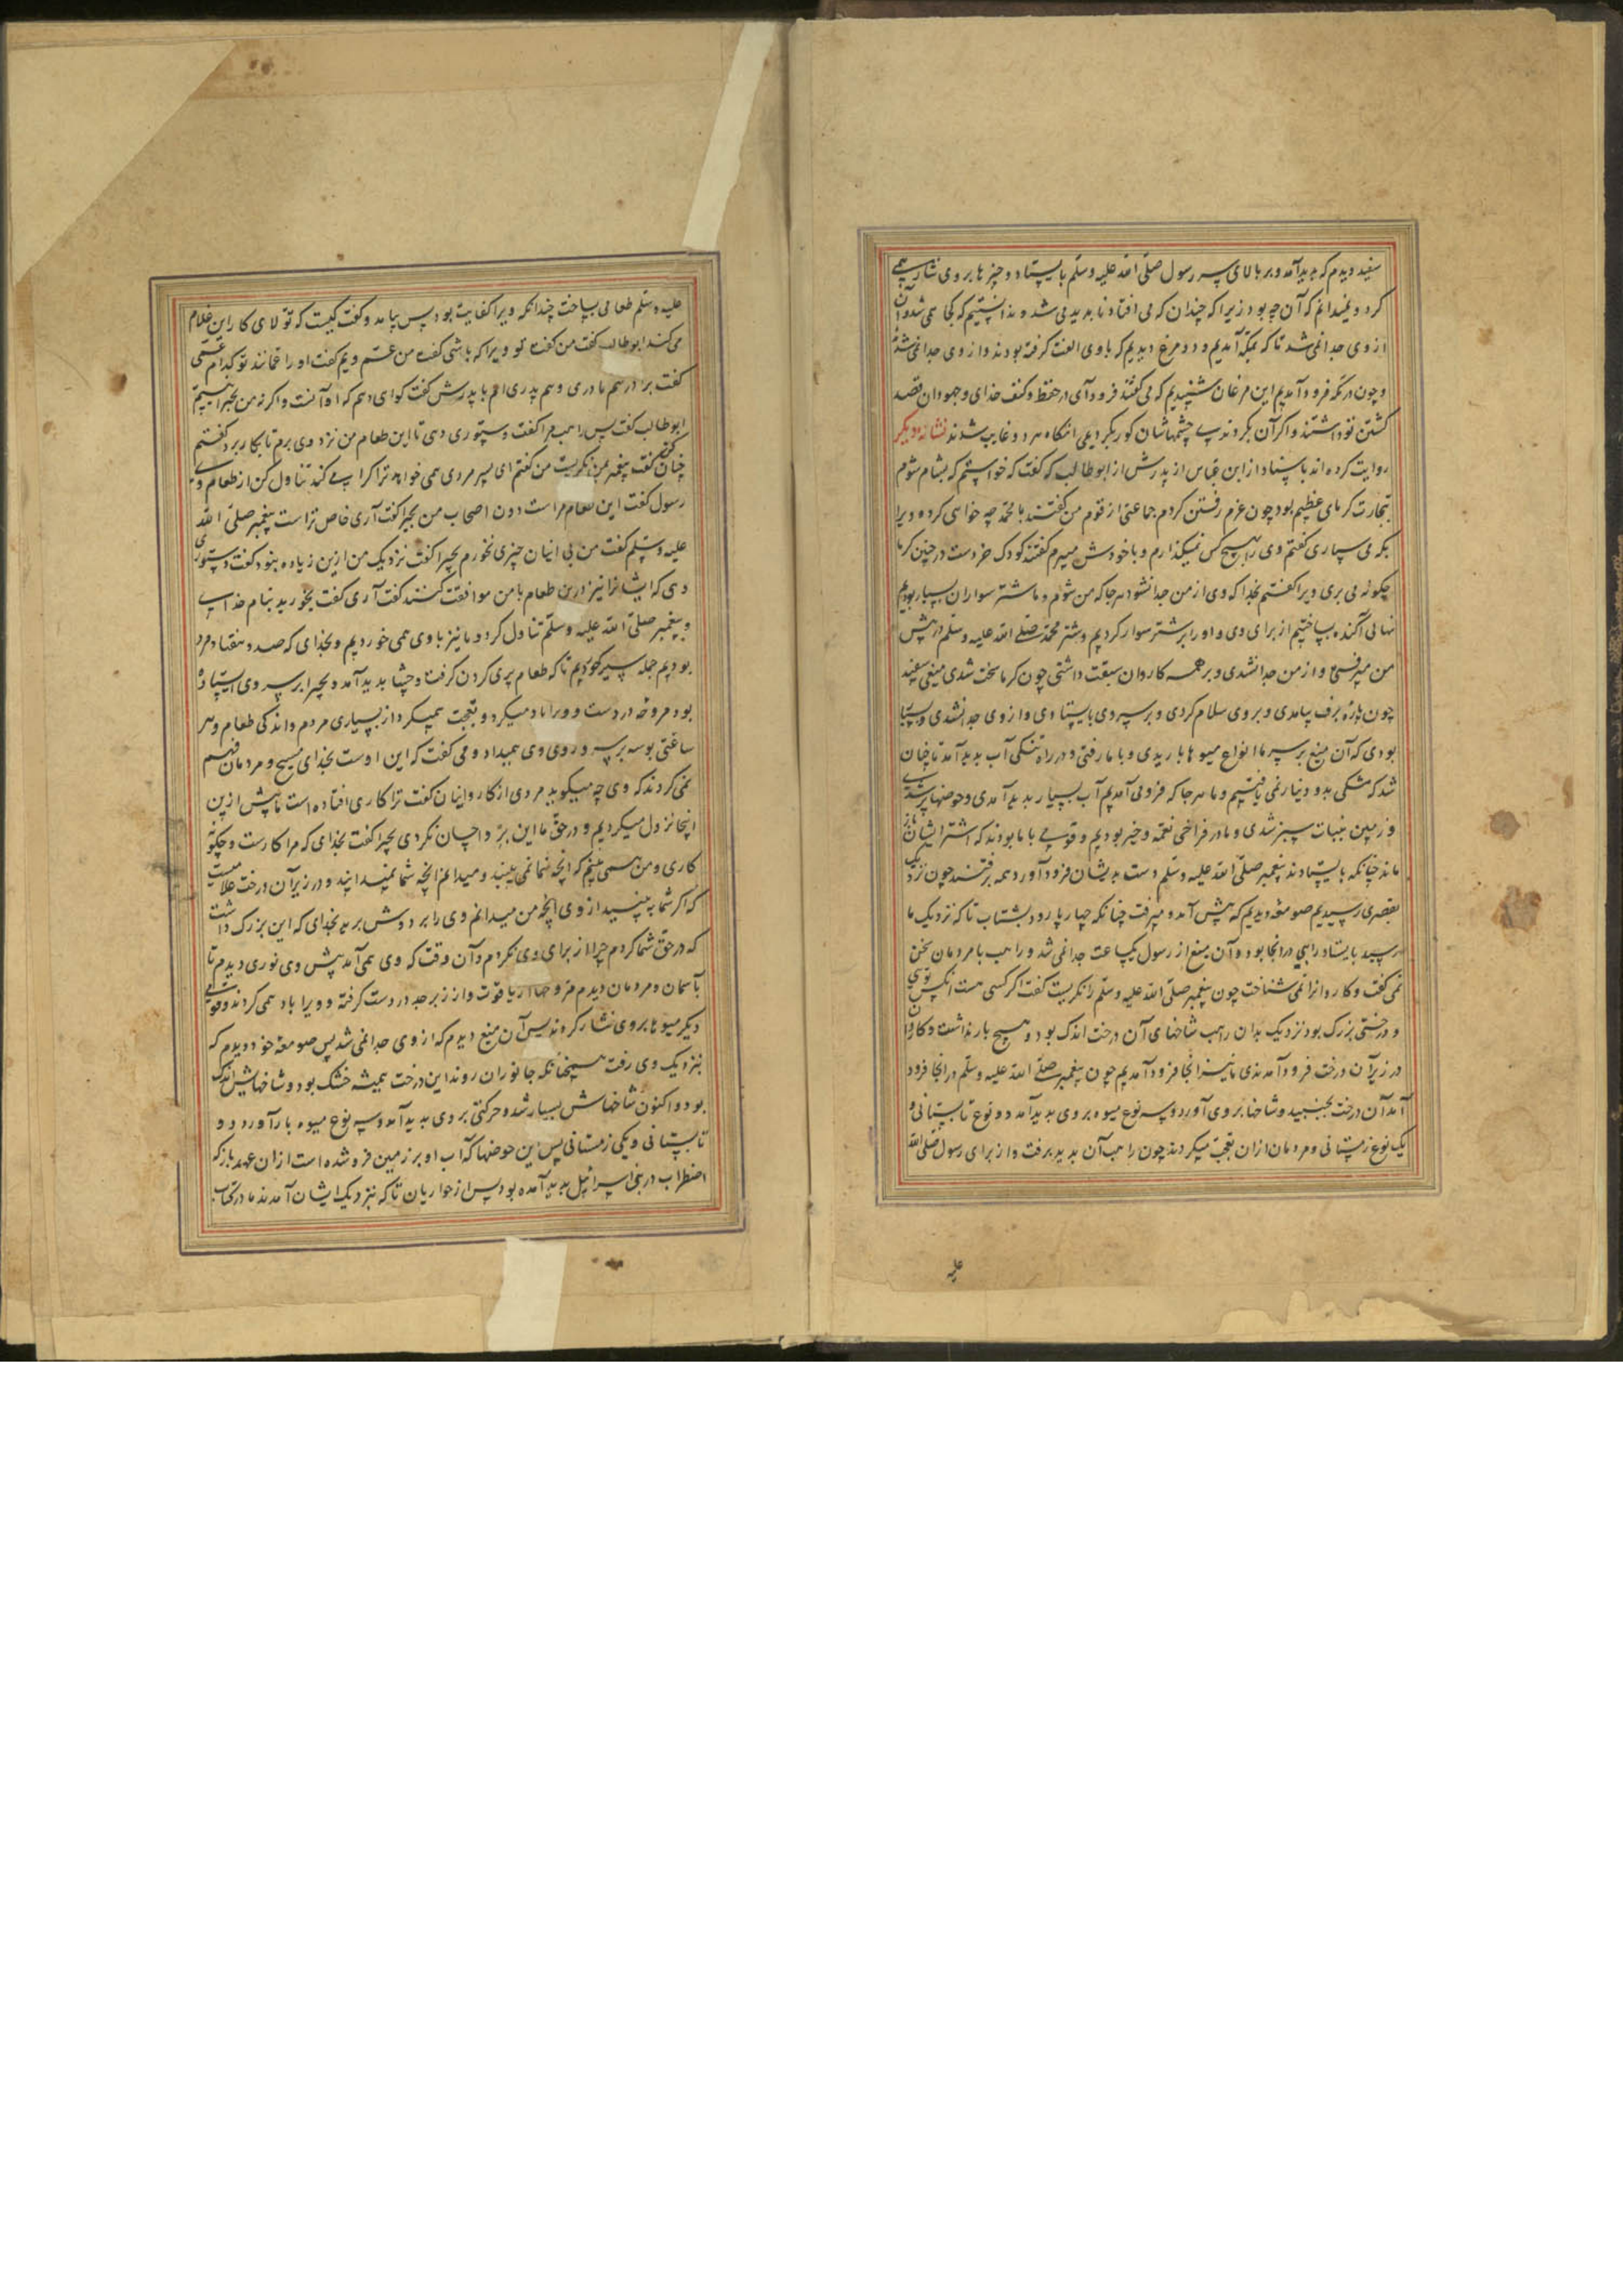 سفید دیدم که پدید آمد و بر بالای سر رسول صلی الله علیه وسلم بایستاد و چیزها بر وی نثار همی
کرد و نمیدانم که آن چه بود زیرا که چندان که می افتاد ناپدید می شد و ندانستیم که کجا می شد و آن
از وی جدا نمی شد تا که بمکه آمدیم و دو مرغ دیدیم که با وی الفت گرفته بودند و از وی جدا نمی شدند
و چون در مکه فرود آمدیم این مرغان شنیدیم که می گفتند فرود آی در حفظ و کنف خدای و جهودان قصد
کشتن تو داشتند و اگر آن بکردندی چشمهاشان کور بکردیمی آنگاه هر دو غایب شدند نشانه دیگر
روایت کرده اند باسناد از ابن عباس از پدرش از ابوطالب که گفت که خواستم که بشام شوم
بتجارت گرمای عظیم بود چون عزم رفتن کردم جماعتی از قوم من گفتند با محمد چه خواهی کرد و ویرا
بکه می سپاری گفتم وی را بهیچ کس نمیگذارم و با خودش میبرم گفتند کودک خردست در چنین گرما
چگونه می بری ویرا گفتم بخدا که وی از من جدا نشود هر جا که من شوم و ما شتر سواران بسیار بودیم
نهالی آکنده بساختیم از برای وی و او را بر شتر سوار کردیم و شتر محمد صلی الله علیه وسلم در پیش
من میرفتی و از من جدا نشدی و بر همه کاروان سبقت داشتی چون گرما سخت شدی میغی سفید
چون پاره برف بیامدی و بر وی سلام کردی و بر سر وی بایستادی و از وی جدا نشدی و بسیار
بودی که آن میغ بر سر ما انواع میوها باریدی و با ما رفتی و در راه تنگی آب پدید آمد تا چنان
شد که مشکی بدو دینار نمی یافتیم و ما هر جا که فرو می آمدیم آب بسیار پدید آمدی و حوضها پر شدی
و زمین بنبات سبز شدی و ما در فراخی نعمه و خیر بودیم و قومی با ما بودند که اشتر ایشان باز
ماند چنانکه بایستادند پیغمبر صلی الله علیه وسلم دست بدیشان فرود آورد همه برفتند چون نزدیک
بقصری رسیدیم صومعه دیدیم که پیش آمد و میرفت چنانکه چهارپا رود بشتاب تا که نزدیک ما
رسید بایستاد راهبی در آنجا بود و آن میغ از رسول یکساعت جدا نمی شد و راهب با مردمان سخن
نمی گفت و کاروانرا نمی شناخت چون پیغمبر صلی الله علیه وسلم را نگریست گفت اگر کسی هست آنکس توی
و درختی بزرگ بود نزدیک بدان راهب شاخهای آن درخت اندک بود و هیچ بار نداشت و کاروان
در زیر آن درخت فرود آمدندی ما نیز آنجا فرود آمدیم چون پیغمبر صلی الله علیه وسلم در آنجا فرود
آمد آن درخت بجنبید و شاخها بر وی آورد و سه نوع میوه بر وی پدید آمد دو نوع تابستانی و
یک نوع زمستانی و مردمان ازان تعجب میکردند چون راهب آن بدید برفت و از برای رسول صلی الله
علیه
علیه وسلم طعامی بساخت چندانکه ویرا کفایت بود پس بیامد و گفت کیست که تولای کار این غلام
می کند ابوطالب گفت من گفت تو ویرا که باشی گفت من عم ویم گفت او را عمانند تو کدام عمی
گفت برادرهم مادری و هم پدری ام با پدرش گفت گواهی دهم که او آنست و اگر نه من بحیرا نیستم
ابوطالب گفت پس راهب مرا گفت دستوری دهی تا این طعام من نزد وی برم تا بکار برد گفتم
چنان کنم گفت پیغمبر بمن نگریست من گفتم ای پسر مردی همی خواهد ترا کرامی کند تناول کن از طعام وی
رسول گفت این طعام مراست دون اصحاب من بحیرا گفت آری خاص تراست پیغمبر صلی الله
علیه وسلم گفت من بی اینان چیزی نخورم بحیرا گفت نزدیک من ازین زیاده نبود گفت دستوری
دهی که ایشانرا نیز درین طعام با من موافقت کنند گفت آری گفت بخورید بنام خدای
و پیغمبر صلی الله علیه وسلم تناول کرد و ما نیز با وی همی خوردیم و بخدای که صد و هفتاد مرد
بودیم جمله سیر خوردیم تا که طعام پری کردن گرفت و جشا پدید آمد و بحیرا بر سر وی ایستاده
بود مروحه در دست و ورا باد میکرد و تعجب همیکرد از بسیاری مردم و اندکی طعام و هر
ساعتی بوسه بر سر و روی وی همیداد و می گفت که این اوست بخدای مسیح و مردمان فهم
نمی کردند که وی چه میگوید مردی از کاروانیان گفت ترا کاری افتاده است ما پیش ازین
اینجا نزول میکردیم و در حق ما این بر و احسان نکردی بحیرا گفت بخدای که مرا کارست و چگونه
کاری و من همی بینم که آنچه شما نمی بینید و میدانم آنچه شما نمیدانید و در زیر آن درخت غلامیست
که اگر شما به بینید از وی آنچه من میدانم وی را بر دوش برید بخدای که این بزرگ داشت
که در حق شما کردم جز از برای وی نکردم و آن وقت که وی همی آمد پیش وی نوری دیدم تا
بآسمان و مردمان دیدم مروحها از یاقوت و از زبرجد در دست گرفته و ویرا باد همی کردند و قومی
دیگر میوها بر وی نثار کردند پس آن میغ دیدم که از وی جدا نمی شد پس صومعه خود دیدم که
بنزدیک وی رفت همچنانکه جانوران روند این درخت همیشه خشک بود و شاخهایش اندک
بود و اکنون شاخهاش بسیار شد و حرکتی بر وی پدید آمد و سه نوع میوه بار آورد دو
تابستانی و یکی زمستانی پس این حوضها که آب او بر زمین فرو شده است ازان عهد باز که
اضطراب در بنی اسرائیل پدید آمده بود پس از حواریان تا که بنزدیک ایشان آمدند ما در کتاب